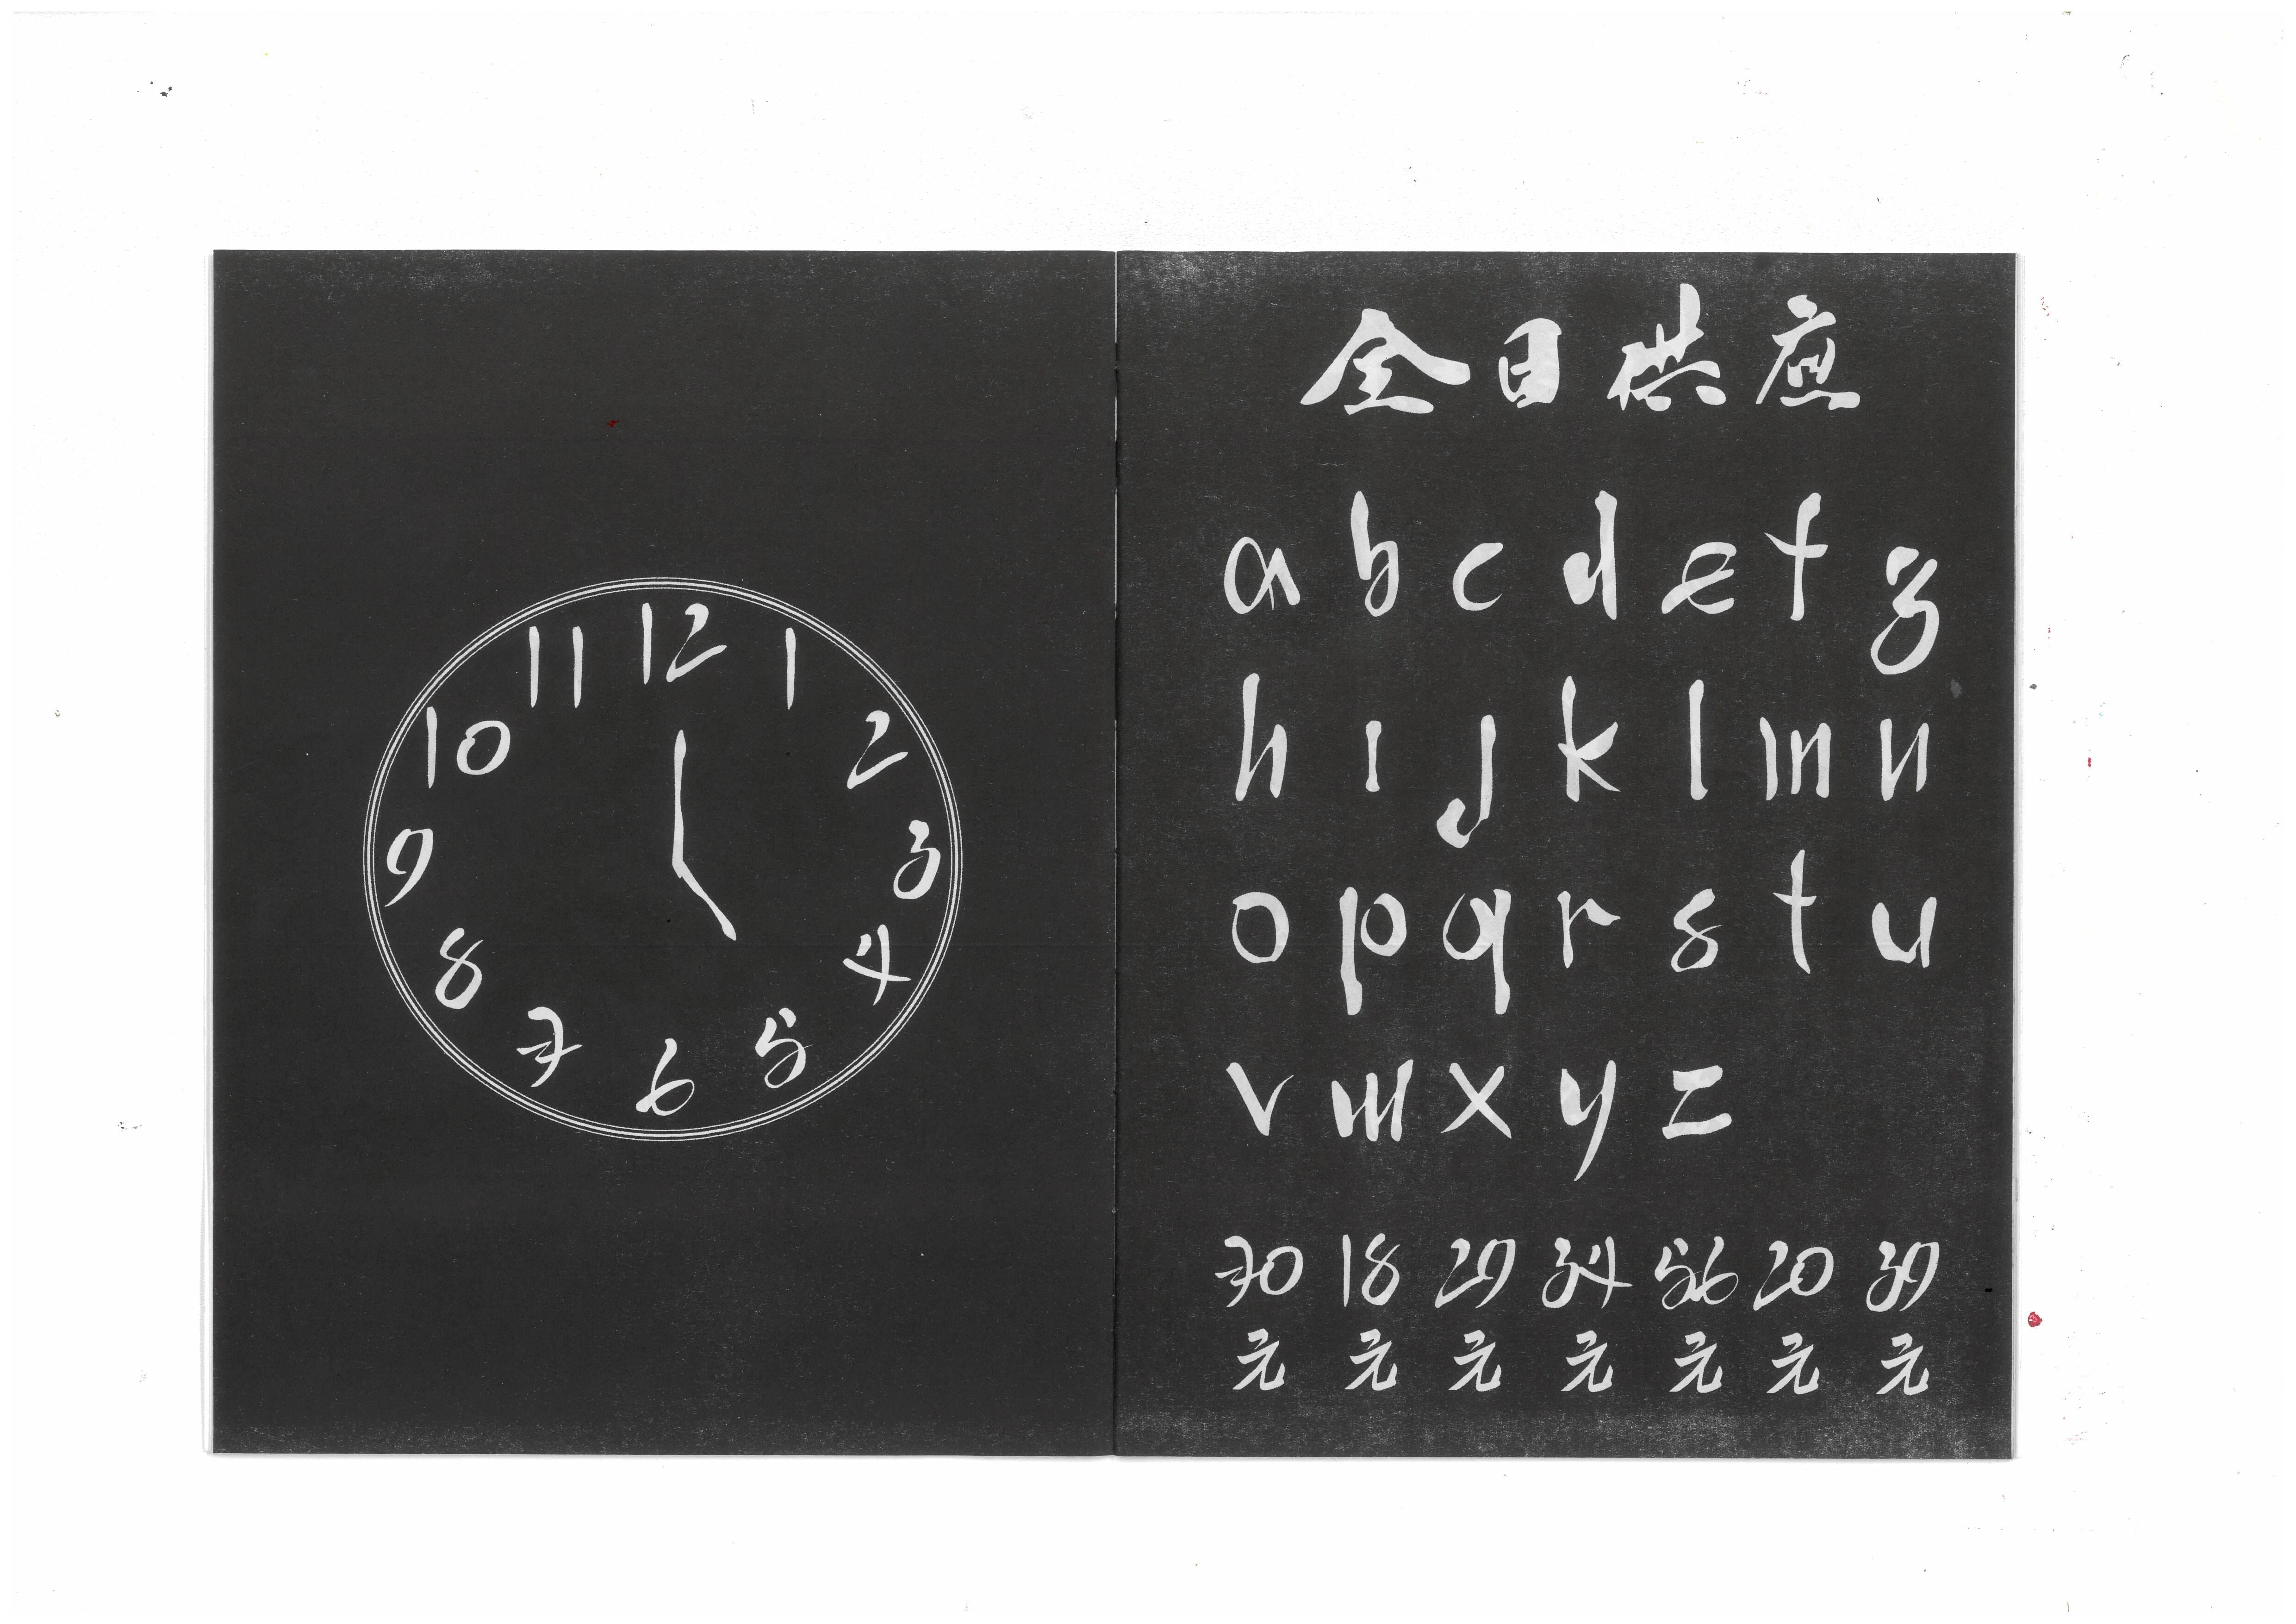 12
1
2
3
4
5
6
7
8
9
10
11
全日供應
a b c d e f g
h i j k l m n
o p q r s t u
v w x y z
70 18 29 34 56 20 39
元 元 元 元 元 元 元